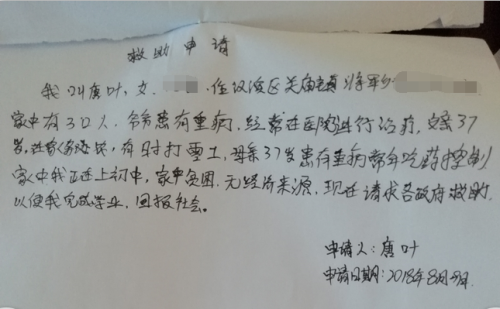 救助申请
我叫唐叶，女，住汉滨区关庙镇将军
家中有3口人，爷爷患有重病，经常在医院进行治疗，父亲37
岁，在家务农，有时打零工，母亲37岁患有重病常年吃药控制
家中我正上初中，家中贫困，无经济来源，现在请求各政府救助，
以便我完成学业，回报社会。
申请人：唐叶
申请日期：2018年8月9日。